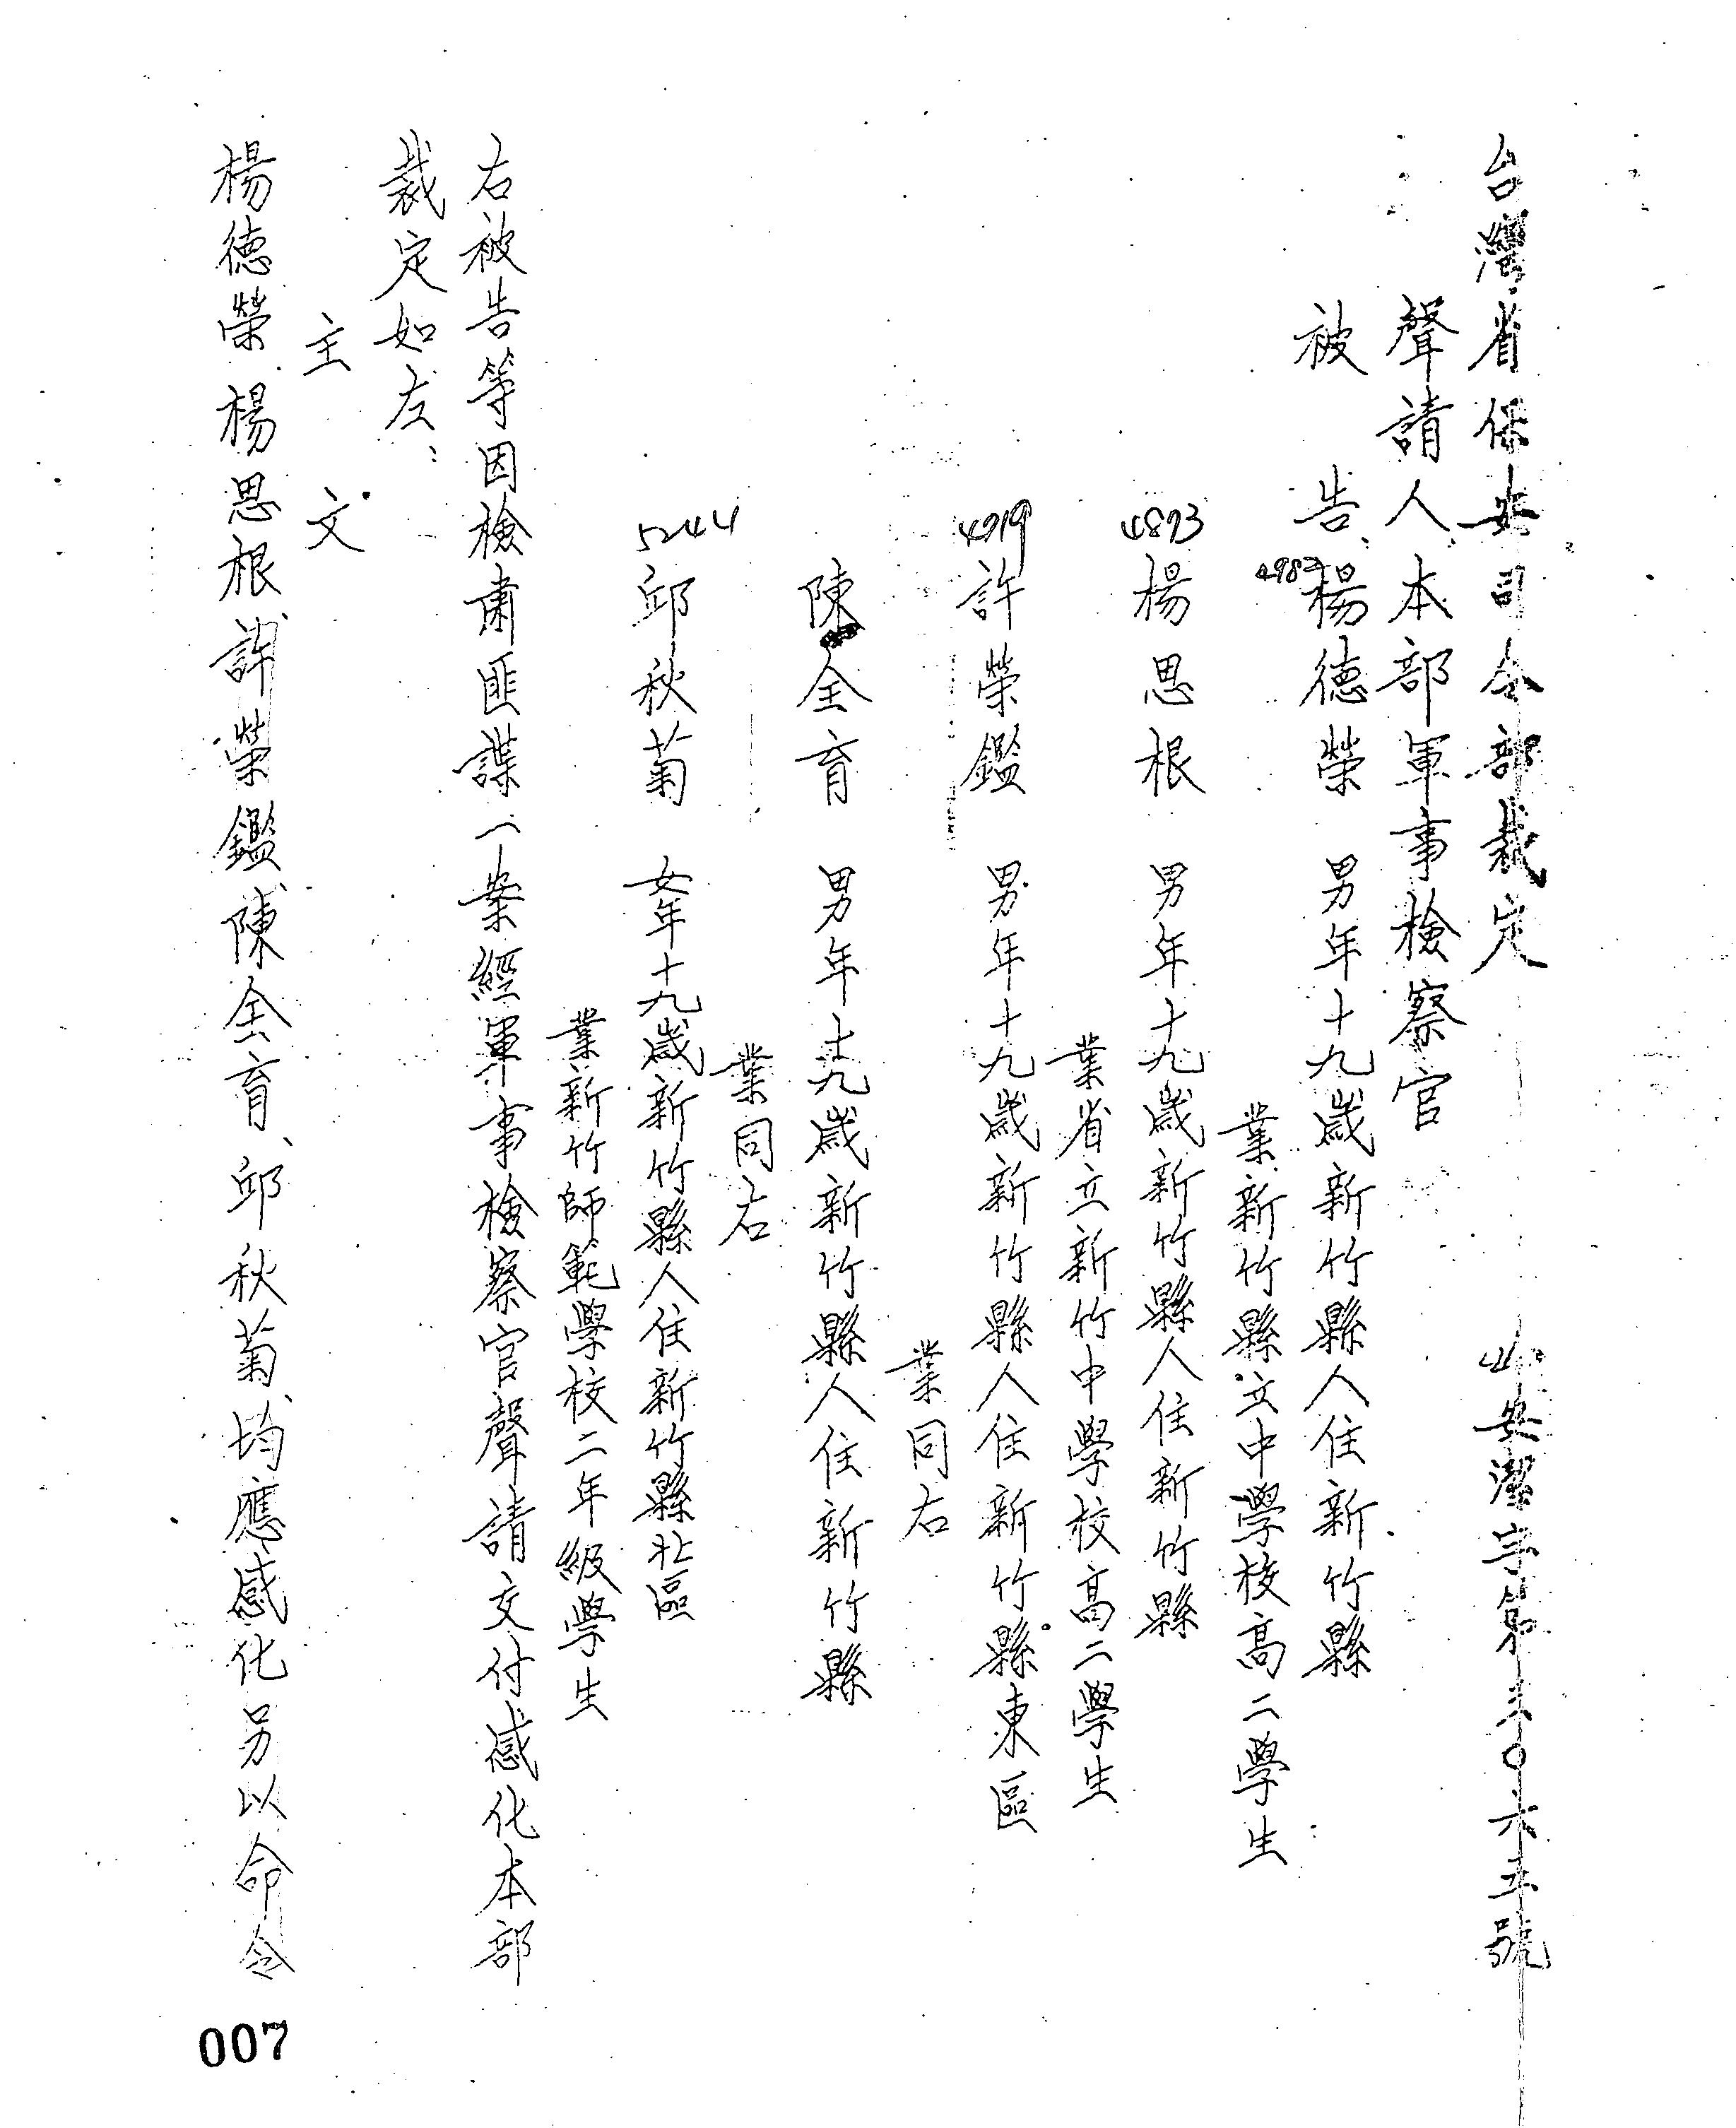 台灣省保安司令部裁定
安潔字第三〇六五號
聲請人本部軍事檢察官
被告 楊德榮 男年十九歲新竹縣人住新竹縣
業新竹縣立中學校高二學生
4873
楊思根 男年十九歲新竹縣人住新竹縣
業省立新竹中學校高二學生
許榮鑑 男年十九歲新竹縣人住新竹縣東區
業同右
陳全育 男年十九歲新竹縣人住新竹縣
業同右
5244
邱秋菊 女年十九歲新竹縣人住新竹縣北區
業新竹師範學校二年級學生
右被告等因檢肅匪諜一案經軍事檢察官聲請交付感化本部
裁定如左:
主文
楊德榮楊思根、許榮鑑、陳全育、邱秋菊、均應感化另以命令
007